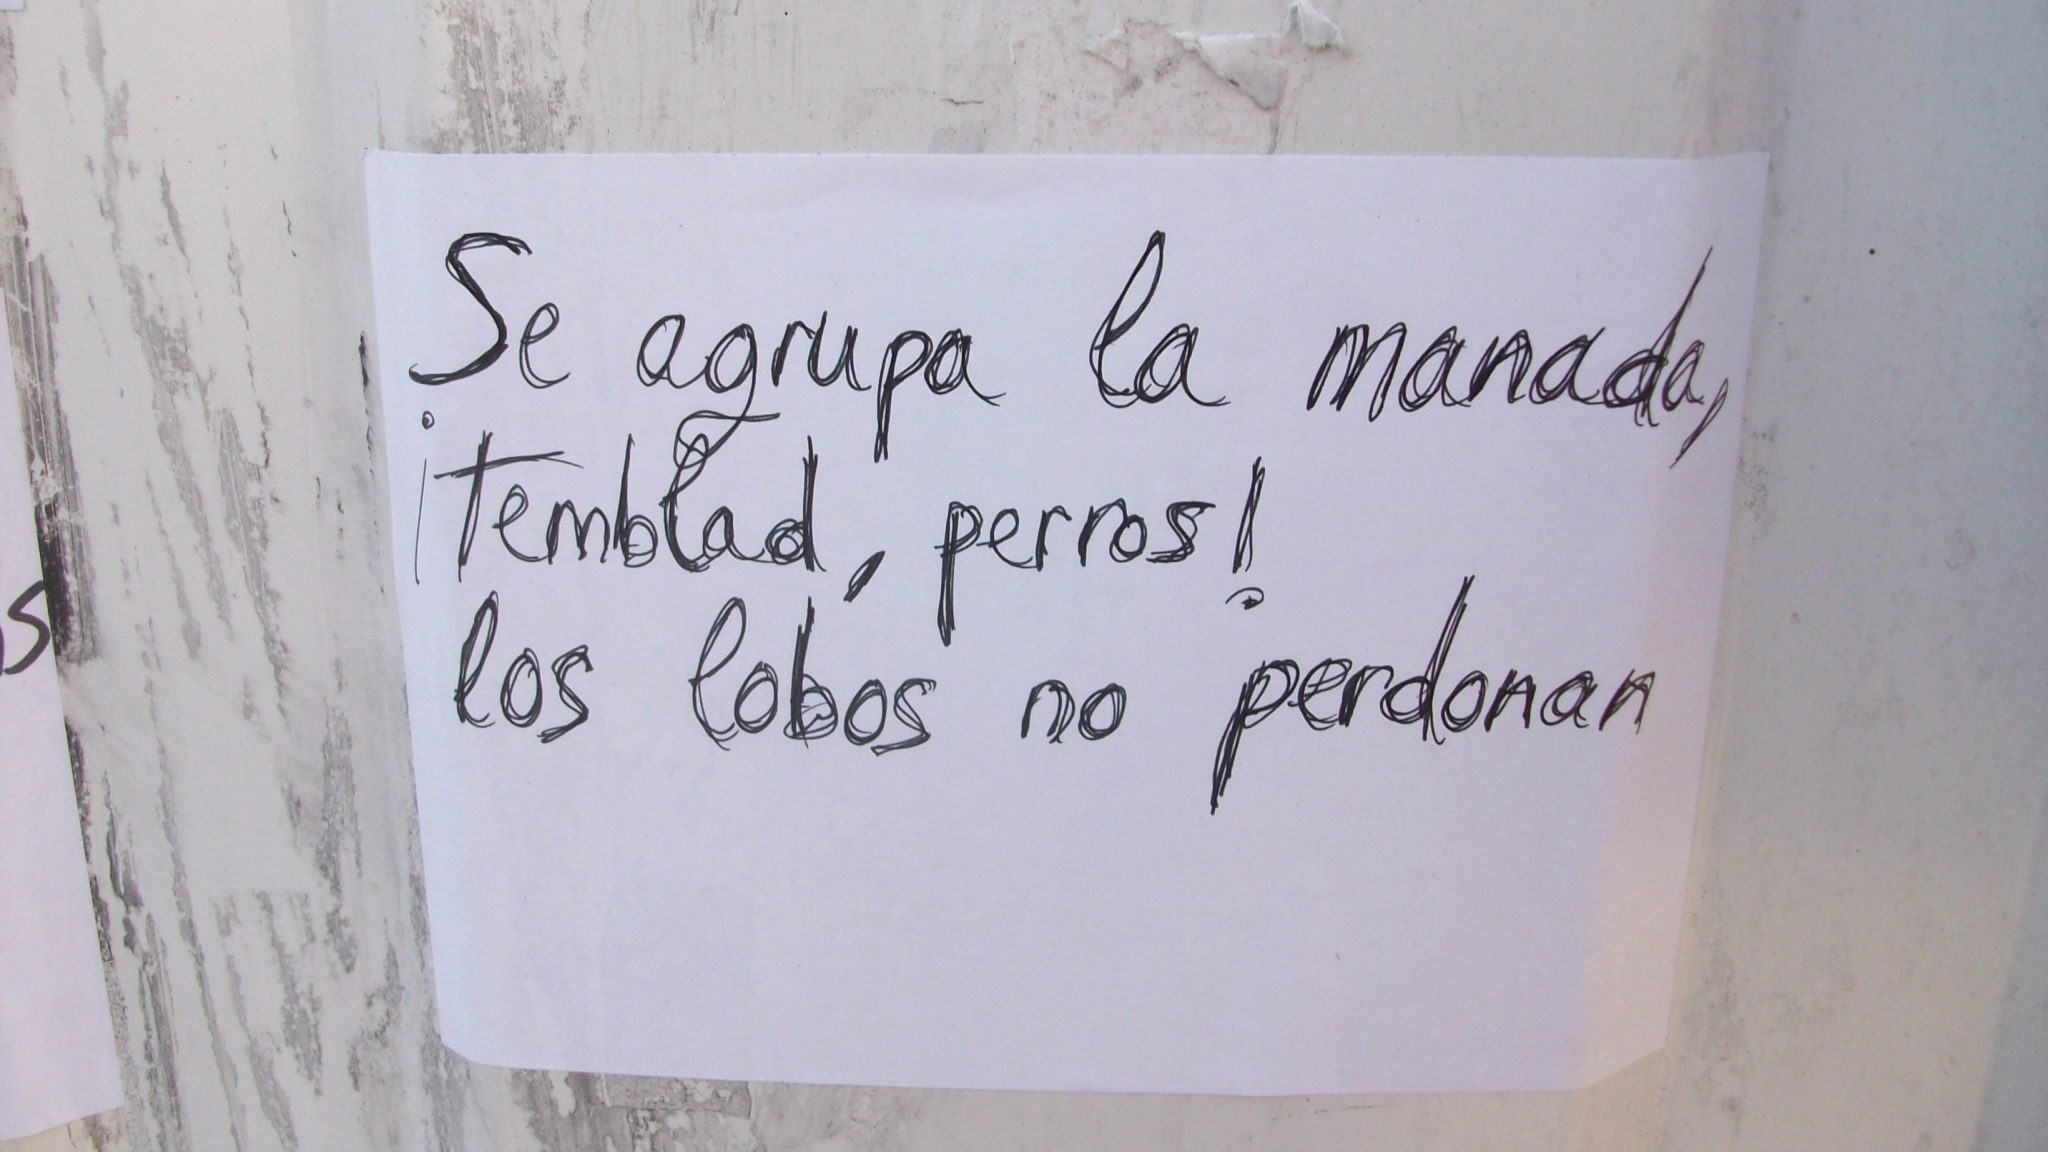 Se agrupa la manada,
¡Temblad, perros!
los lobos no perdonan